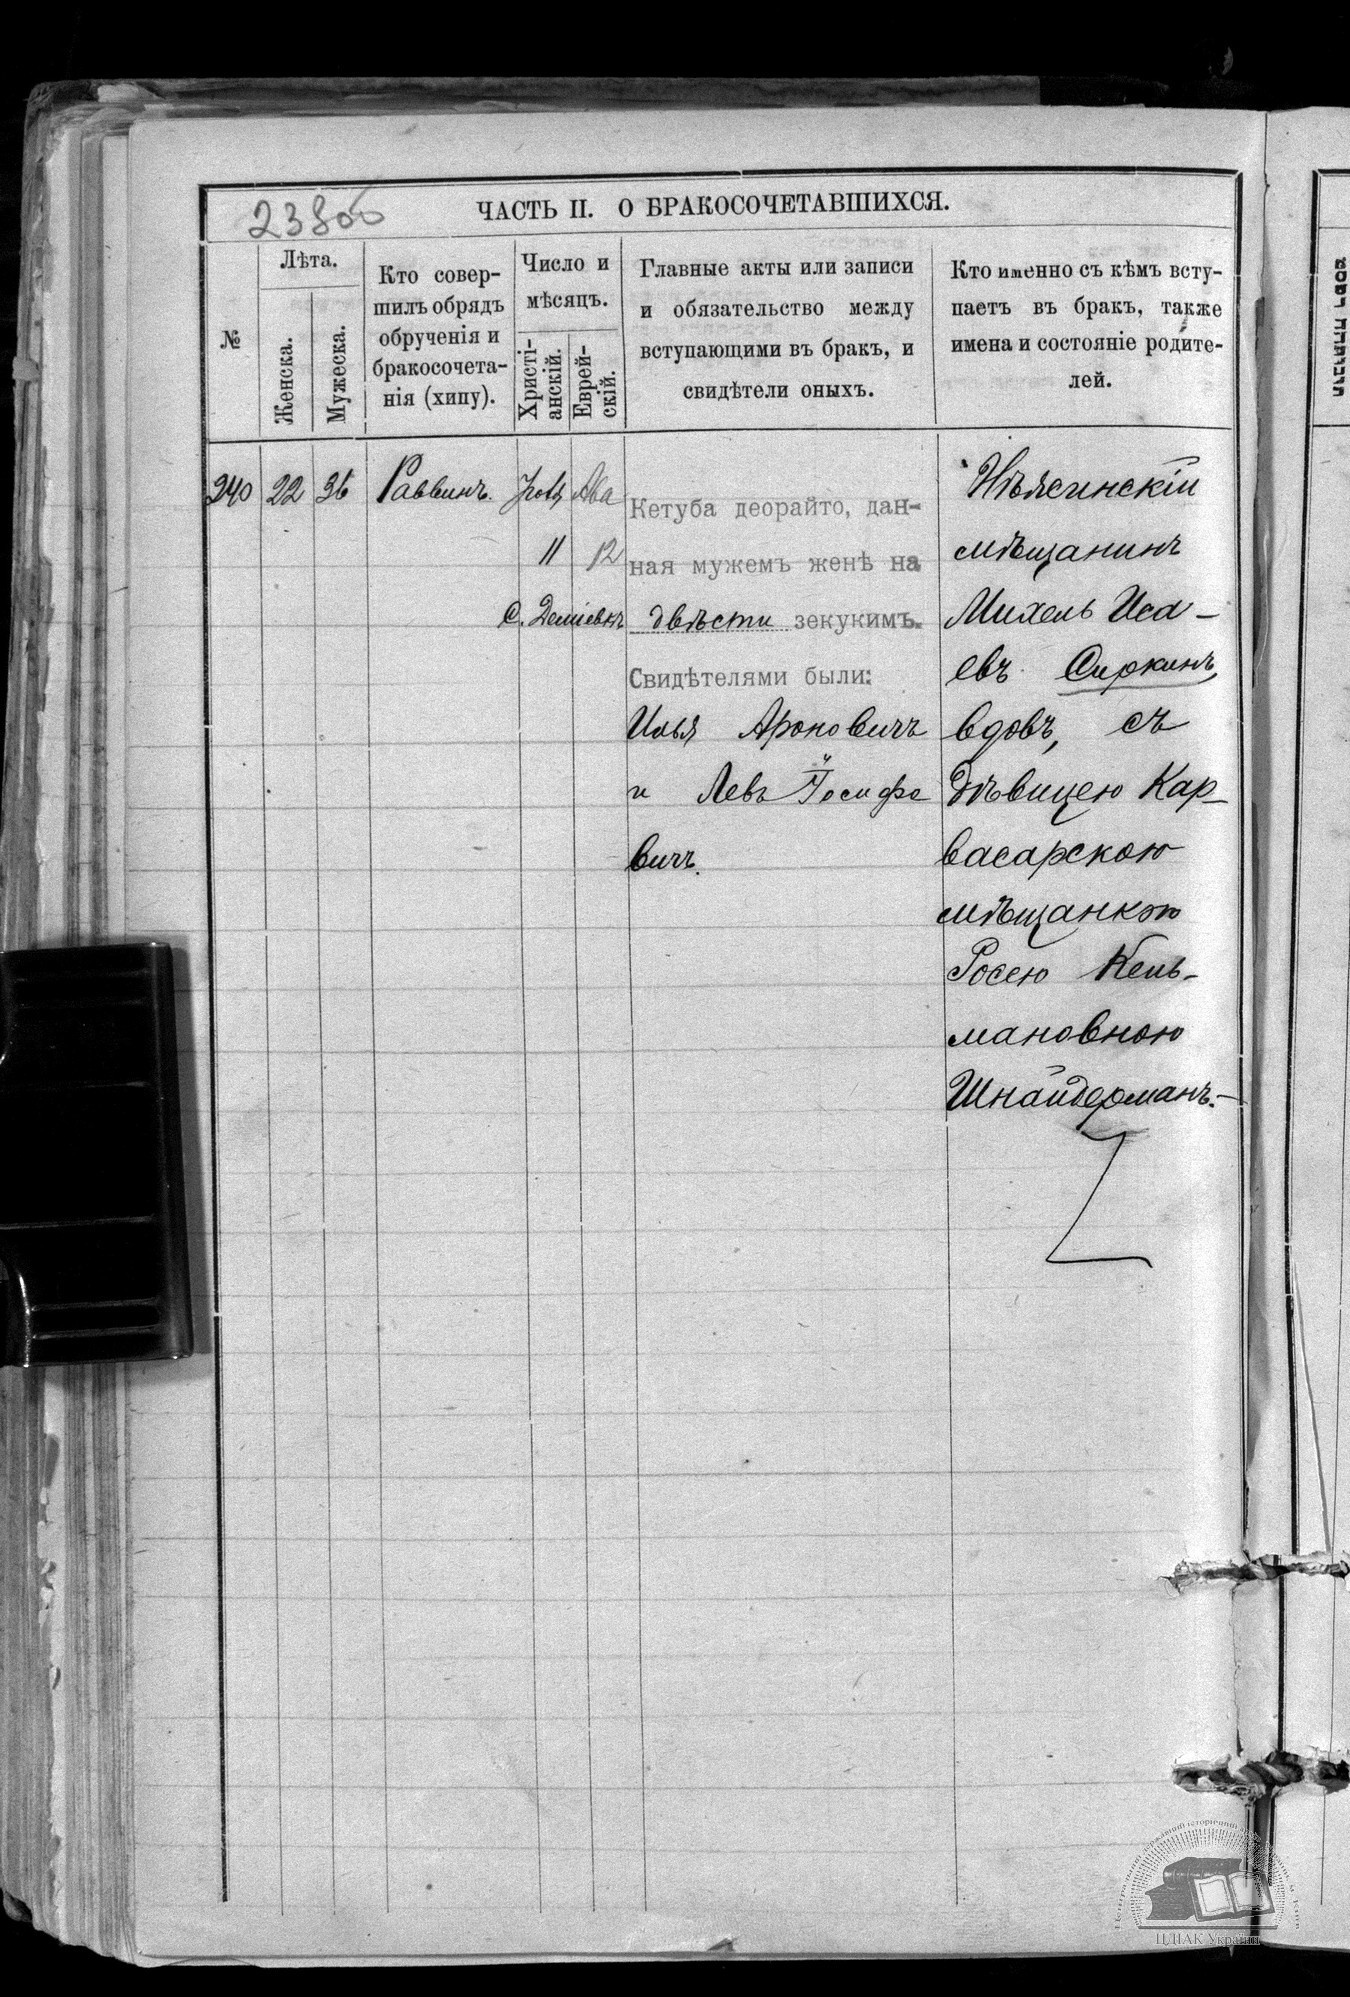 238об
ЧАСТЬ II. О БРАКОСОЧЕТАВШИХСЯ.
№
Лѣта.
Женска.
Мужеска.
Кто совер-
шилъ обрядъ
обрученія и
бракосочета-
нія (хипу).
Число и
мѣсяцъ.
Христі-
анскій.
Еврей-
скій.
Главные акты или записи
и обязательство между
вступающими въ бракъ, и
свидѣтели оныхъ.
Кто именно съ кѣмъ всту-
паетъ въ бракъ, также
имена и состояніе родите-
лей.
240
22
36
Раввинъ.
11
Ава
12
С. Деміевкъ
Кетуба деорайто, дан-
ная мужемъ женѣ на
двѣсти зекукимъ.
Свидѣтелями были:
Илья Ароновичъ
и Левъ Іосифо
вичъ.
мѣщанинъ
Михель Иса-
евъ Сиркинъ,
вдовъ, съ
дѣвицею Кар-
васарскою
мѣщанкою
Росею Кель-
мановною
Шнайдерманъ.-
ЦДІАК України